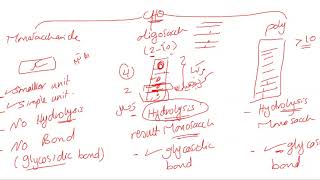 CHO
Monosaccharide
oligosacch
(2-10)
poly
>10
→ Smaller unit
→ Simple unit.
→ No Hydrolysis
→ No Bond
(glycosidic bond)
4
2
Hydrolysis
result Monosacch
glycosidic
bond
Hydrolysis
Monosacch
glycosidic
bond